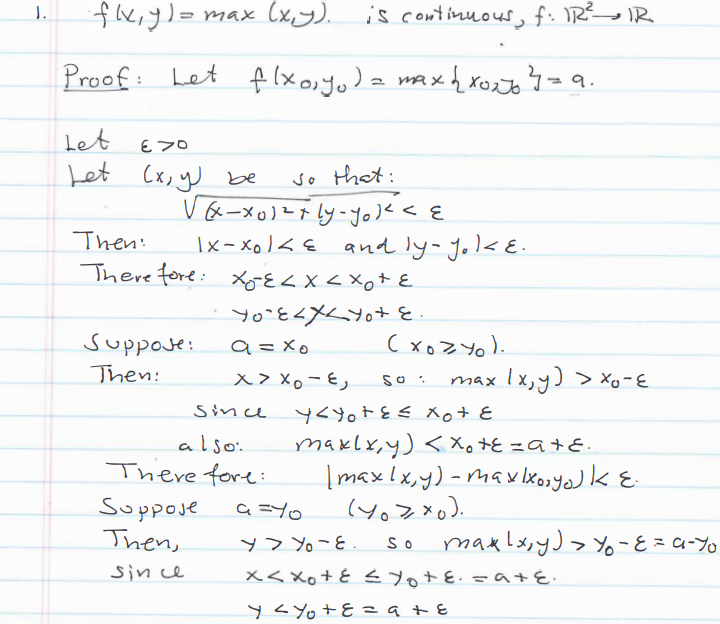 1. f(x,y) = max (x,y). is continuous, f: ℝ² → ℝ
Proof: Let f(x₀,y₀) = max{x₀,y₀} = a.
Let ε>0
Let (x,y) be so that:
√(x-x₀)²+(y-y₀)² < ε
Then: |x-x₀|<ε and |y-y₀|<ε.
Therefore: x₀-ε < x < x₀+ε
y₀-ε<y<y₀+ε.
Suppose: a = x₀ (x₀≥y₀).
Then: x > x₀-ε, so: max(x,y) > x₀-ε
since y<y₀+ε ≤ x₀+ε
also: max(x,y) < x₀+ε = a+ε.
Therefore: |max(x,y) - max(x₀,y₀)|< ε.
Suppose a=y₀ (y₀ ≥ x₀).
Then, y > y₀-ε. so max(x,y) > y₀-ε = a-y₀
since x<x₀+ε ≤ y₀+ε. = a+ε.
y < y₀+ε = a+ε